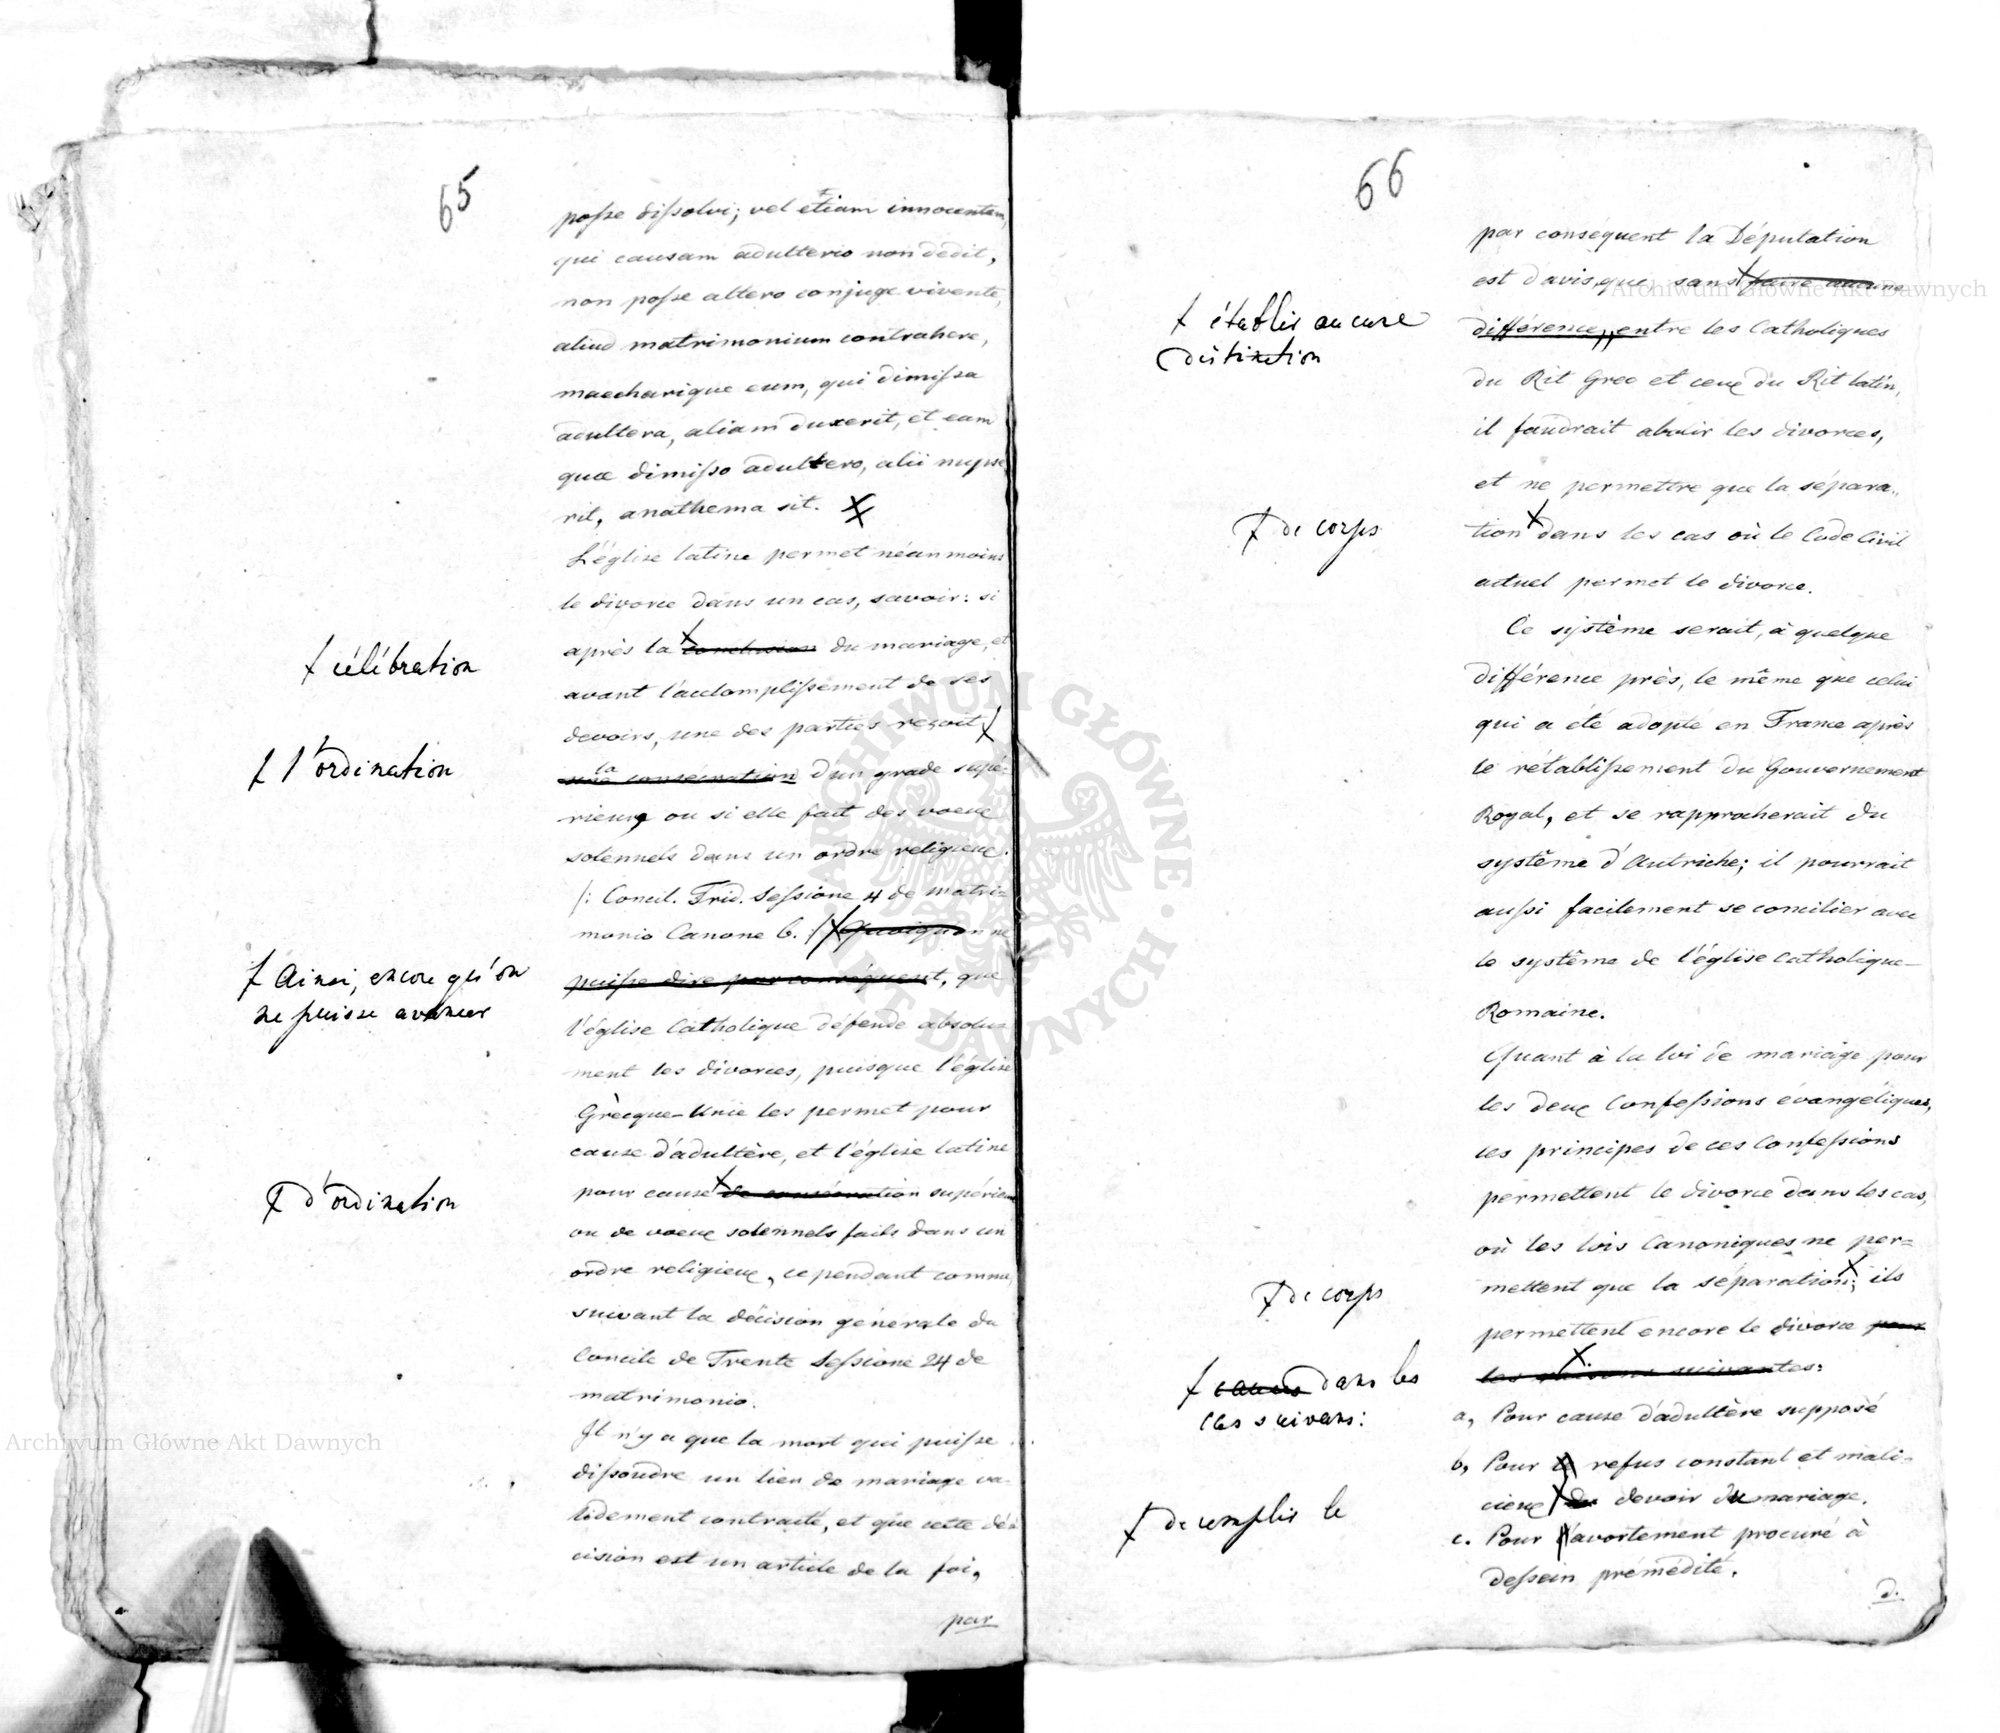 65
posse dissolvi; vel etiam innocentem,
qui causam adulterio non dedit,
non posse altero conjuge vivente,
aliud matrimonium contrahere,
maecharique eum, qui dimissa
adultera, aliam duxerit, et eam
quae dimisso adultero, alii nupse
rit, anathema sit.
L'église latine permet néanmoins
le divorce dans un cas, savoir: si
après la conclusion du mariage, et
+ célébration
avant l'acclomplissement de ses
devoirs, une des parties reçoit
+ l'ordination
la consécration d'un grade supé-
rieur, ou si elle fait des voeux
solennels dans un ordre religieux.
/: Concil. Trid. Sessione 4 de matri-
monio Canone 6. :/ Quoiqu'on ne
+ Ainsi, encore qu'on
ne puisse avancer
puisse dire par conséquent, que
l'église Catholique défende absolu-
ment les divorces, puisque l'église
Grècque-Unie les permet pour
cause d'adultère, et l'église latine
pour cause de consécration supérieure
+ d'ordination
ou de voeux solennels faits dans un
ordre religieux, cependant comme
suivant la décision générale du
Concile de Trente Sessione 24 de
matrimonio.
Il n'y a que la mort qui puisse
dissoudre un lien de mariage va-
lidement contracté, et que cette dé-
cision est un article de la foi,
par
66
par conséquent la Députation
est d'avis, que sans faire aucune
+ établir aucune
distinction
différence, entre les Catholiques
du Rit Grec et ceux du Rit latin,
il faudrait abolir les divorces,
et ne permettre que la sépara-
tion dans les cas où le Code Civil
+ de corps
actuel permet le divorce.
Ce système serait, à quelque
différence près, le même que celui
qui a été adopté en France après
le rétablissement du Gouvernement
Royal, et se rapprocherait du
système d'Autriche; il pourrait
aussi facilement se concilier avec
le système de l'église Catholique-
Romaine.
Quant à la loi de mariage pour
les deux Confessions évangéliques,
les principes de ces Confessions
permettent le divorce dans les cas,
où les lois Canoniques ne per-
mettent que la séparation; ils
+ de corps
permettent encore le divorce pour
les raisons suivantes:
+ dans les
cas suivans:
a, Pour cause d'adultère supposé
b, Pour refus constant et mali-
cieux de devoir du mariage.
+ de remplir le
c. Pour l'avortement procuré à
dessein prémédité.
d.
Archiwum Główne Akt Dawnych
Archiwum Główne Akt Dawnych
ARCHIWUM GŁÓWNE AKT DAWNYCH